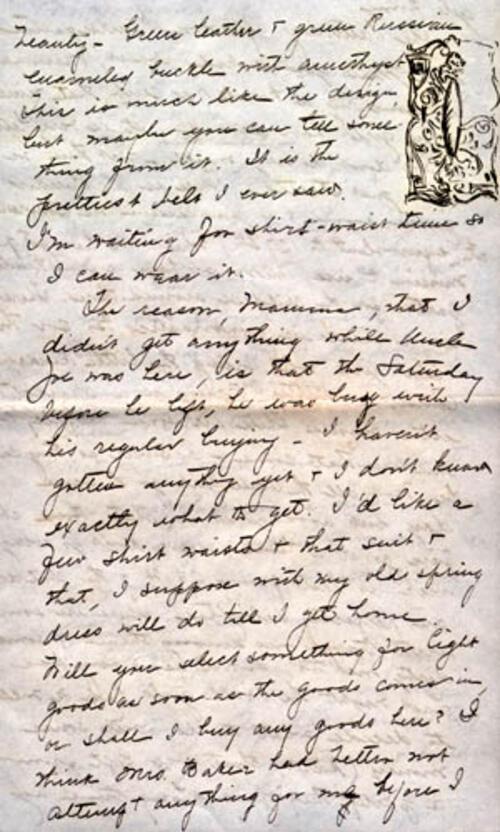 beauty - Green leather & green Russian
enameled buckle with amethyst
This is much like the design,
but maybe you can tell some
thing from it. It is the
prettiest belt I ever saw.
I'm waiting for shirt-waist time so
I can wear it.
The reason, Mamma, that I
didn't get anything while Uncle
Joe was here, is that the Saturday
before he left, he was busy with
his regular buying - I haven't
gotten anything yet & I don't know
exactly what to get. I'd like a
few shirt waists & that suit &
that, I suppose with my old spring
dress will do till I get home.
Will you select something for light
goods as soon as the goods comes in,
or shall I buy any goods here? I
think Mrs. Baker had better not
attempt anything for me before I